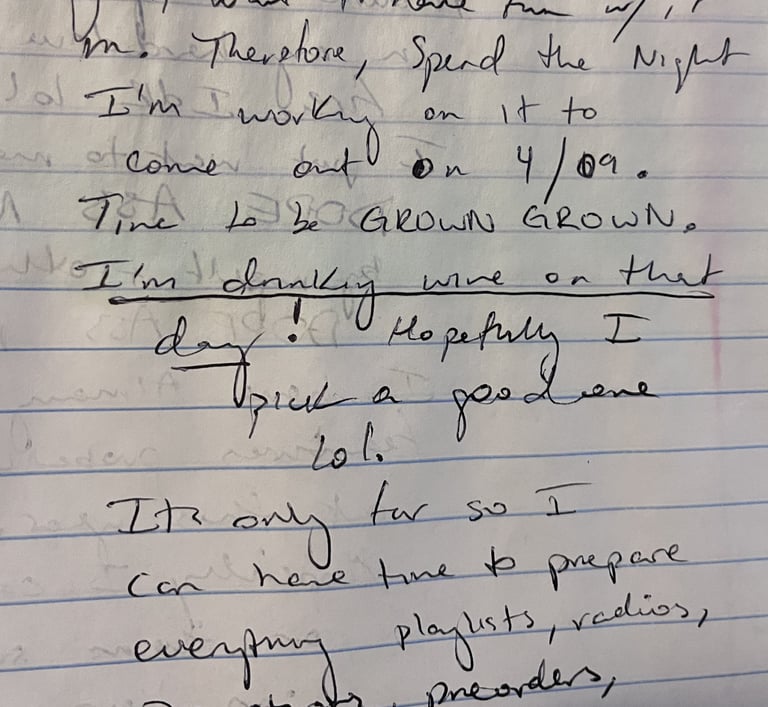 fun w/ it
m. Therefore, Spend the Night
I'm working on it to
come out on 4/09.
Time to be GROWN GROWN.
I'm drinking wine on that
day! Hopefully I
pick a good one
lol.
It's only far so I
can have time to prepare
everything playlists, radios,
preorders,